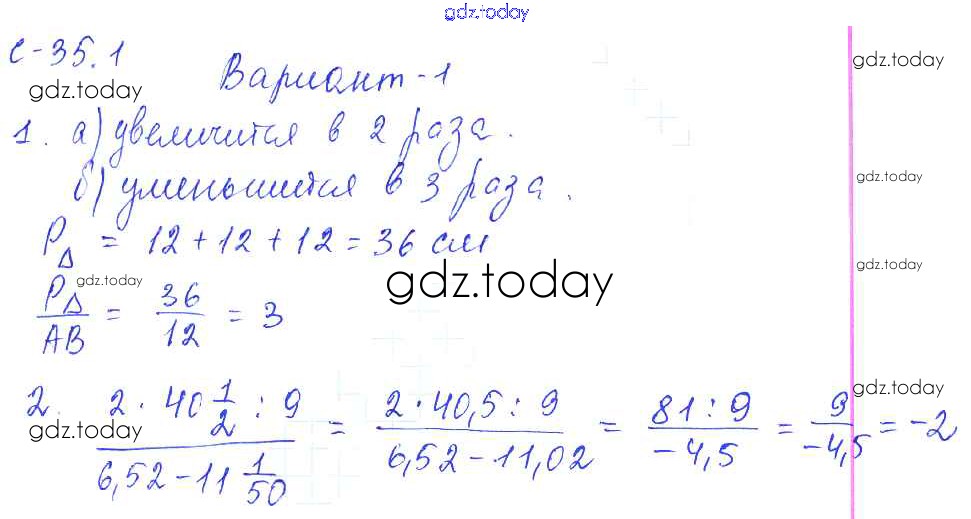 gdz.today
С-35.1
gdz.today
Вариант-1
gdz.today
1. а) увеличится в 2 раза.
б) уменьшится в 3 раза.
gdz.today
P△ = 12 + 12 + 12 = 36 см
gdz.today
gdz.today
gdz.today
P△/AB = 36/12 = 3
gdz.today
2. (2 · 40 1/2 : 9)/(6,52 - 11 1/50) = (2 · 40,5 : 9)/(6,52 - 11,02) = (81 : 9)/(-4,5) = 9/(-4,5) = -2
gdz.today
gdz.today